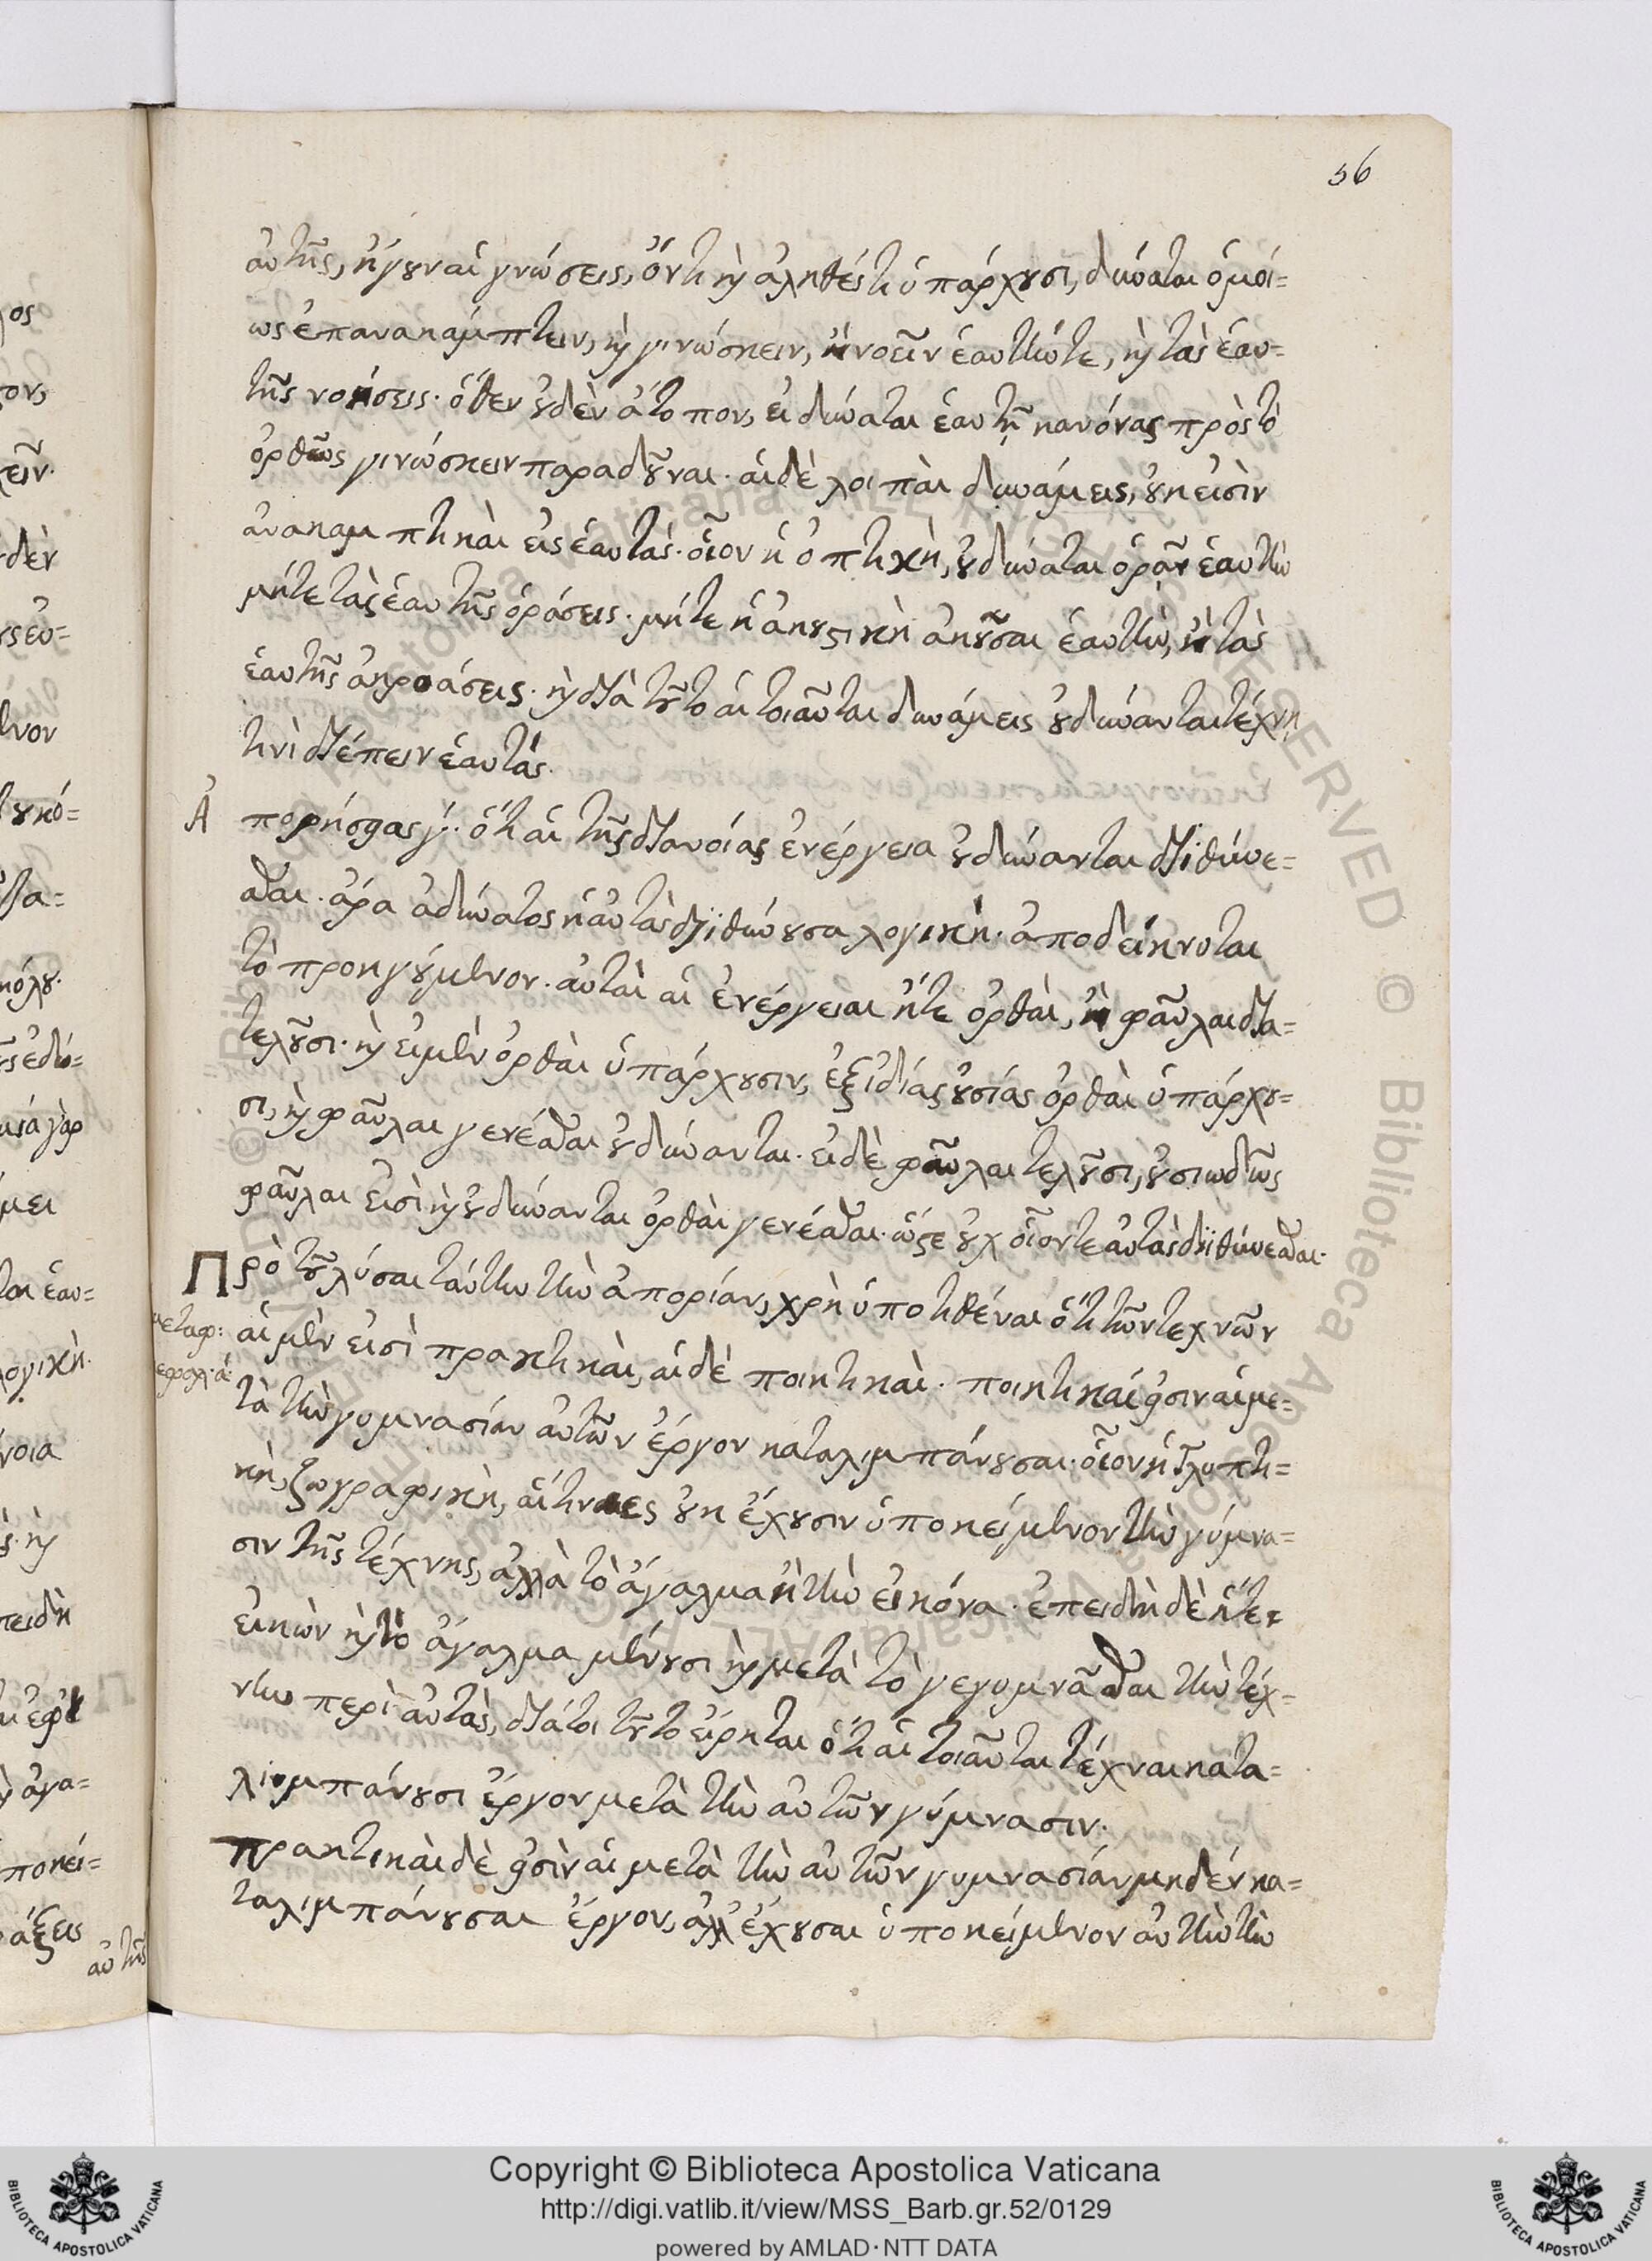 56
αὐτῆς, ἤγουν αἱ γνώσεις, ὄν τι καὶ ἀληθές τι ὑπάρχουσι, δύναται ὁμοί=
ως ἐπανακάμπτειν, καὶ γινώσκειν, ἢ νοεῖν ἑαυτήν τε, καὶ τὰς ἑαυ=
τῆς νοήσεις· ὅθεν οὐδὲν ἄτοπον, εἰ δύναται ἑαυτῇ κανόνας πρὸς τὸ
ὀρθῶς γινώσκειν παραδοῦναι· αἱ δὲ λοιπαὶ δυνάμεις, οὐκ εἰσὶν
ἀνακαμπτικαὶ εἰς ἑαυτάς· οἷον ἡ ὀπτικὴ, οὐ δύναται ὁρᾶν ἑαυτὴν
μήτε τὰς ἑαυτῆς ὁράσεις· μήτε ἡ ἀκουστικὴ ἀκοῦσαι ἑαυτὴν, ἢ τὰς
ἑαυτῆς ἀκροάσεις· καὶ διὰ τοῦτο αἱ τοιαῦται δυνάμεις οὐ δύνανται τέχνῃ
τινὶ διέπειν ἑαυτάς.
Ἀπορήσειας γ΄· ὅτι αἱ τῆς διανοίας ἐνέργεια οὐ δύνανται διϊθύνε=
σθαι· ἄρα ἀδύνατος ἡ αὐτὰς διϊθύνουσα λογική· ἀποδείκνυται
τὸ προηγούμενον· αὐταὶ αἱ ἐνέργειαι ἤτε ὀρθαὶ, ἢ φαῦλαι δια=
τελοῦσι· καὶ εἰ μὲν ὀρθαὶ ὑπάρχουσιν, ἐξ ἰδίας οὐσίας ὀρθαὶ ὑπάρχου=
σι, καὶ φαῦλαι γενέσθαι οὐ δύνανται· εἰ δὲ φαῦλαι τελοῦσι, οὐσιωδῶς
φαῦλαι εἰσὶ καὶ οὐ δύνανται ὀρθαὶ γενέσθαι· ὥστε οὐχ οἷόντε αὐτὰς διϊθύνεσθαι·
Πρὸ τοῦ λύσαι ταύτην τὴν ἀπορίαν, χρὴ ὑποτιθέναι ὅτι τῶν τεχνῶν
μεταφ:
αἱ μὲν εἰσὶ πρακτικαὶ, αἱ δὲ ποιητικαὶ· ποιητικαί εἰσιν αἱ με=
τὰ τὴν γυμνασίαν αὐτῶν ἔργον καταλιμπάνουσαι· οἷον ἡ γλυπτι=
κὴ, ζωγραφικὴ, αἵτινες οὐκ ἔχουσιν ὑποκείμενον τὴν γύμνα=
σιν τῆς τέχνης, ἀλλὰ τὸ ἄγαλμα ἢ τὴν εἰκόνα· ἐπειδὴ δὲ ἥτε
εἰκὼν καὶ τὸ ἄγαλμα μένουσι καὶ μετὰ τὸ γεγυμνᾶσθαι τὴν τέχ=
νην περὶ αὐτὰς, διάτοι τοῦτο εἴρηται ὅτι αἱ τοιαῦται τέχναι κατα=
λιμπάνουσι ἔργον μετὰ τὴν αὐτῶν γύμνασιν·
πρακτικαὶ δὲ εἰσὶν αἱ μετὰ τὴν αὐτῶν γυμνασίαν μηδὲν κα=
ταλιμπάνουσαι ἔργον, ἀλλ' ἔχουσαι ὑποκείμενον αὐτὴν τὴν
αὐτῆς
Copyright © Biblioteca Apostolica Vaticana
http://digi.vatlib.it/view/MSS_Barb.gr.52/0129
powered by AMLAD·NTT DATA
BIBLIOTECA APOSTOLICA VATICANA
BIBLIOTECA APOSTOLICA VATICANA